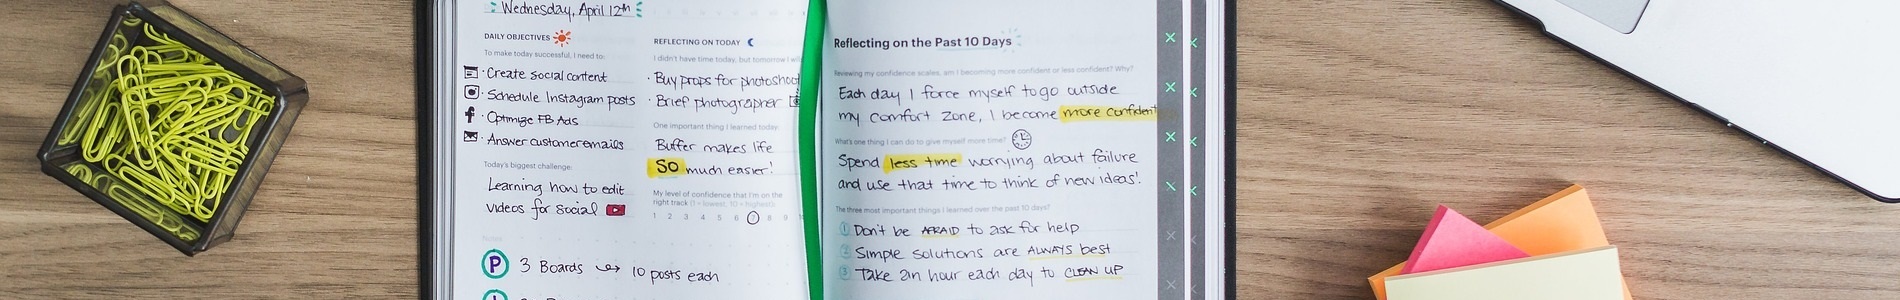 Wednesday, April 12th
DAILY OBJECTIVES
To make today successful, I need to:
· Create social content
· Schedule Instagram posts
· Optimize FB Ads
· Answer customer emails
Today's biggest challenge:
Learning how to edit
videos for social
Notes:
P 3 Boards → 10 posts each
REFLECTING ON TODAY
I didn't have time today, but tomorrow I will
· Buy props for photoshoot
· Brief photographer
One important thing I learned today:
Buffer makes life
SO much easier!
My level of confidence that I'm on the
right track (1 = lowest, 10 = highest):
1 2 3 4 5 6 7 8 9
Reflecting on the Past 10 Days
Reviewing my confidence scales, am I becoming more confident or less confident? Why?
Each day I force myself to go outside
my comfort zone, I become more confident
What's one thing I can do to give myself more time?
Spend less time worrying about failure
and use that time to think of new ideas!
The three most important things I learned over the past 10 days?
1 Don't be AFRAID to ask for help
2 Simple solutions are ALWAYS best
3 Take an hour each day to CLEAN UP